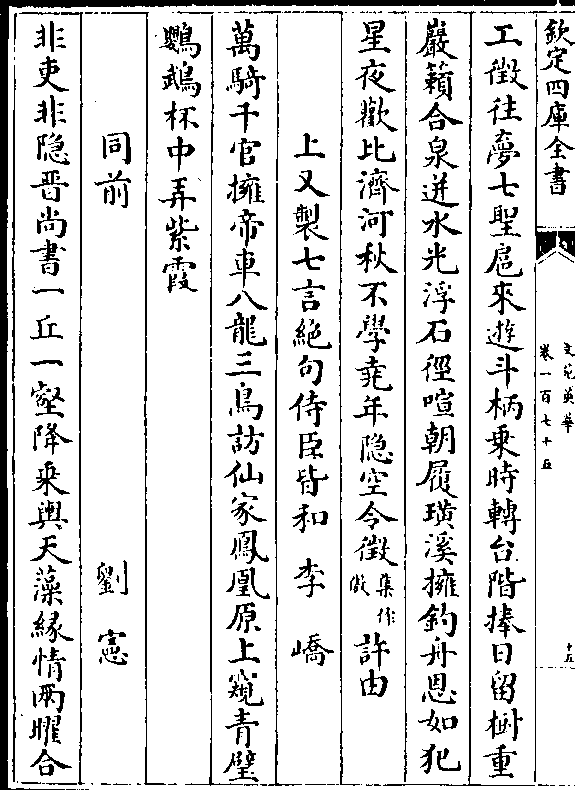 欽定四庫全書
文苑英華
卷一百七十五
十五
工徴往夢七聖扈來遊斗柄乗時轉台階捧日留樹重
巖籟合泉迸水光浮石徑喧朝履璜溪擁釣舟恩如犯
星夜歡比濟河秋不學堯年隠空令徴集作傲許由
上又製七言絶句侍臣皆和　李　嶠
萬騎千官擁帝車八龍三鳥訪仙家鳳凰原上窺青壁
鸚鵡杯中弄紫霞
同前　劉　憲
非吏非隠晋尚書一丘一壑降乗輿天藻縁情兩曜合